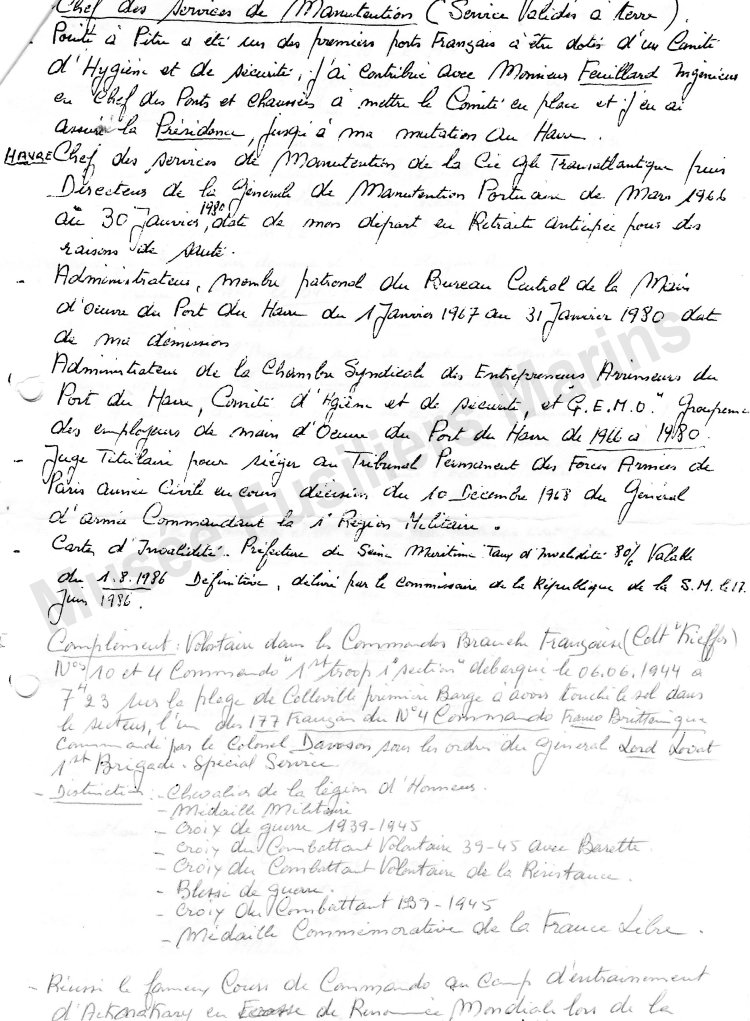 Chef des Services de Manutention (Service Validés à terre).
- Pointe à Pitre a été un des premiers ports Français à être dotés d'un Comité
d'Hygiène et de sécurité, j'ai contribué avec Monsieur Feuillard Ingénieur
en Chef des Ponts et Chaussées à mettre le Comité en place et j'en ai
assuré la Présidence, jusqu'à ma mutation au Havre.
HAVRE Chef des services de Manutention de la Cie Gle Transatlantique puis
Directeur de la Générale de Manutention Portuaire de Mars 1966
au 30 Janvier 1980, date de mon départ en Retraite Anticipée pour des
raisons de santé.
- Administrateur, membre patronal du Bureau Central de la Main
d'Oeuvre du Port du Havre du 1 Janvier 1967 au 31 Janvier 1980 date
de ma démission
Administrateur de la Chambre Syndicale des Entrepreneurs Arrimeurs du
Port du Havre, Comité d'Hgiène et de sécurité, et G.E.M.O." Groupement
des employeurs de main d'Oeuvre du Port du Havre de 1966 à 1980.
- Juge Titulaire pour siéger au Tribunal Permanent des Forces Armées de
Paris année Civile en cours décision du 10 Décembre 1968 du Général
d'armée Commandant la 1° Région Militaire.
- Carte d'Invalidité - Préfecture de Seine Maritime Taux d'Invalidité 80% Valable
du 1.8.1986 Définitive, délivré par le Commissaire de la République de la S.M. le 17
Juin 1986.
Complément: Volontaire dans les Commandos Branche Française (Cdt "Kieffer)
N°s 10 et 4 Commando "1st troop 1° section" débarqué le 06.06.1944 à
7H23 sur la plage de Colleville première Barge à avoir touché le sol dans
le secteur, l'un des 177 Français du N°4 Commando Franco Brittanique
Commandé par le Colonel Dawson sous les ordres du Général Lord Lovat
1st Brigade Spécial Service
- Distinction: - Chevalier de la légion d'Honneur.
- Médaille Militaire
- Croix de guerre 1939-1945
- Croix du Combattant Volontaire 39-45 avec Barette
- Croix du Combattant Volontaire de la Résistance.
- Blessé de guerre.
- Croix du Combattant 1939-1945
- Médaille Commémorative de la France Libre.
- Réussi le fameux Cours de Commando au Camp d'entrainement
d'Acknakary en Ecosse de Renommée Mondiale lors de la
Musée Fusiliers Marins